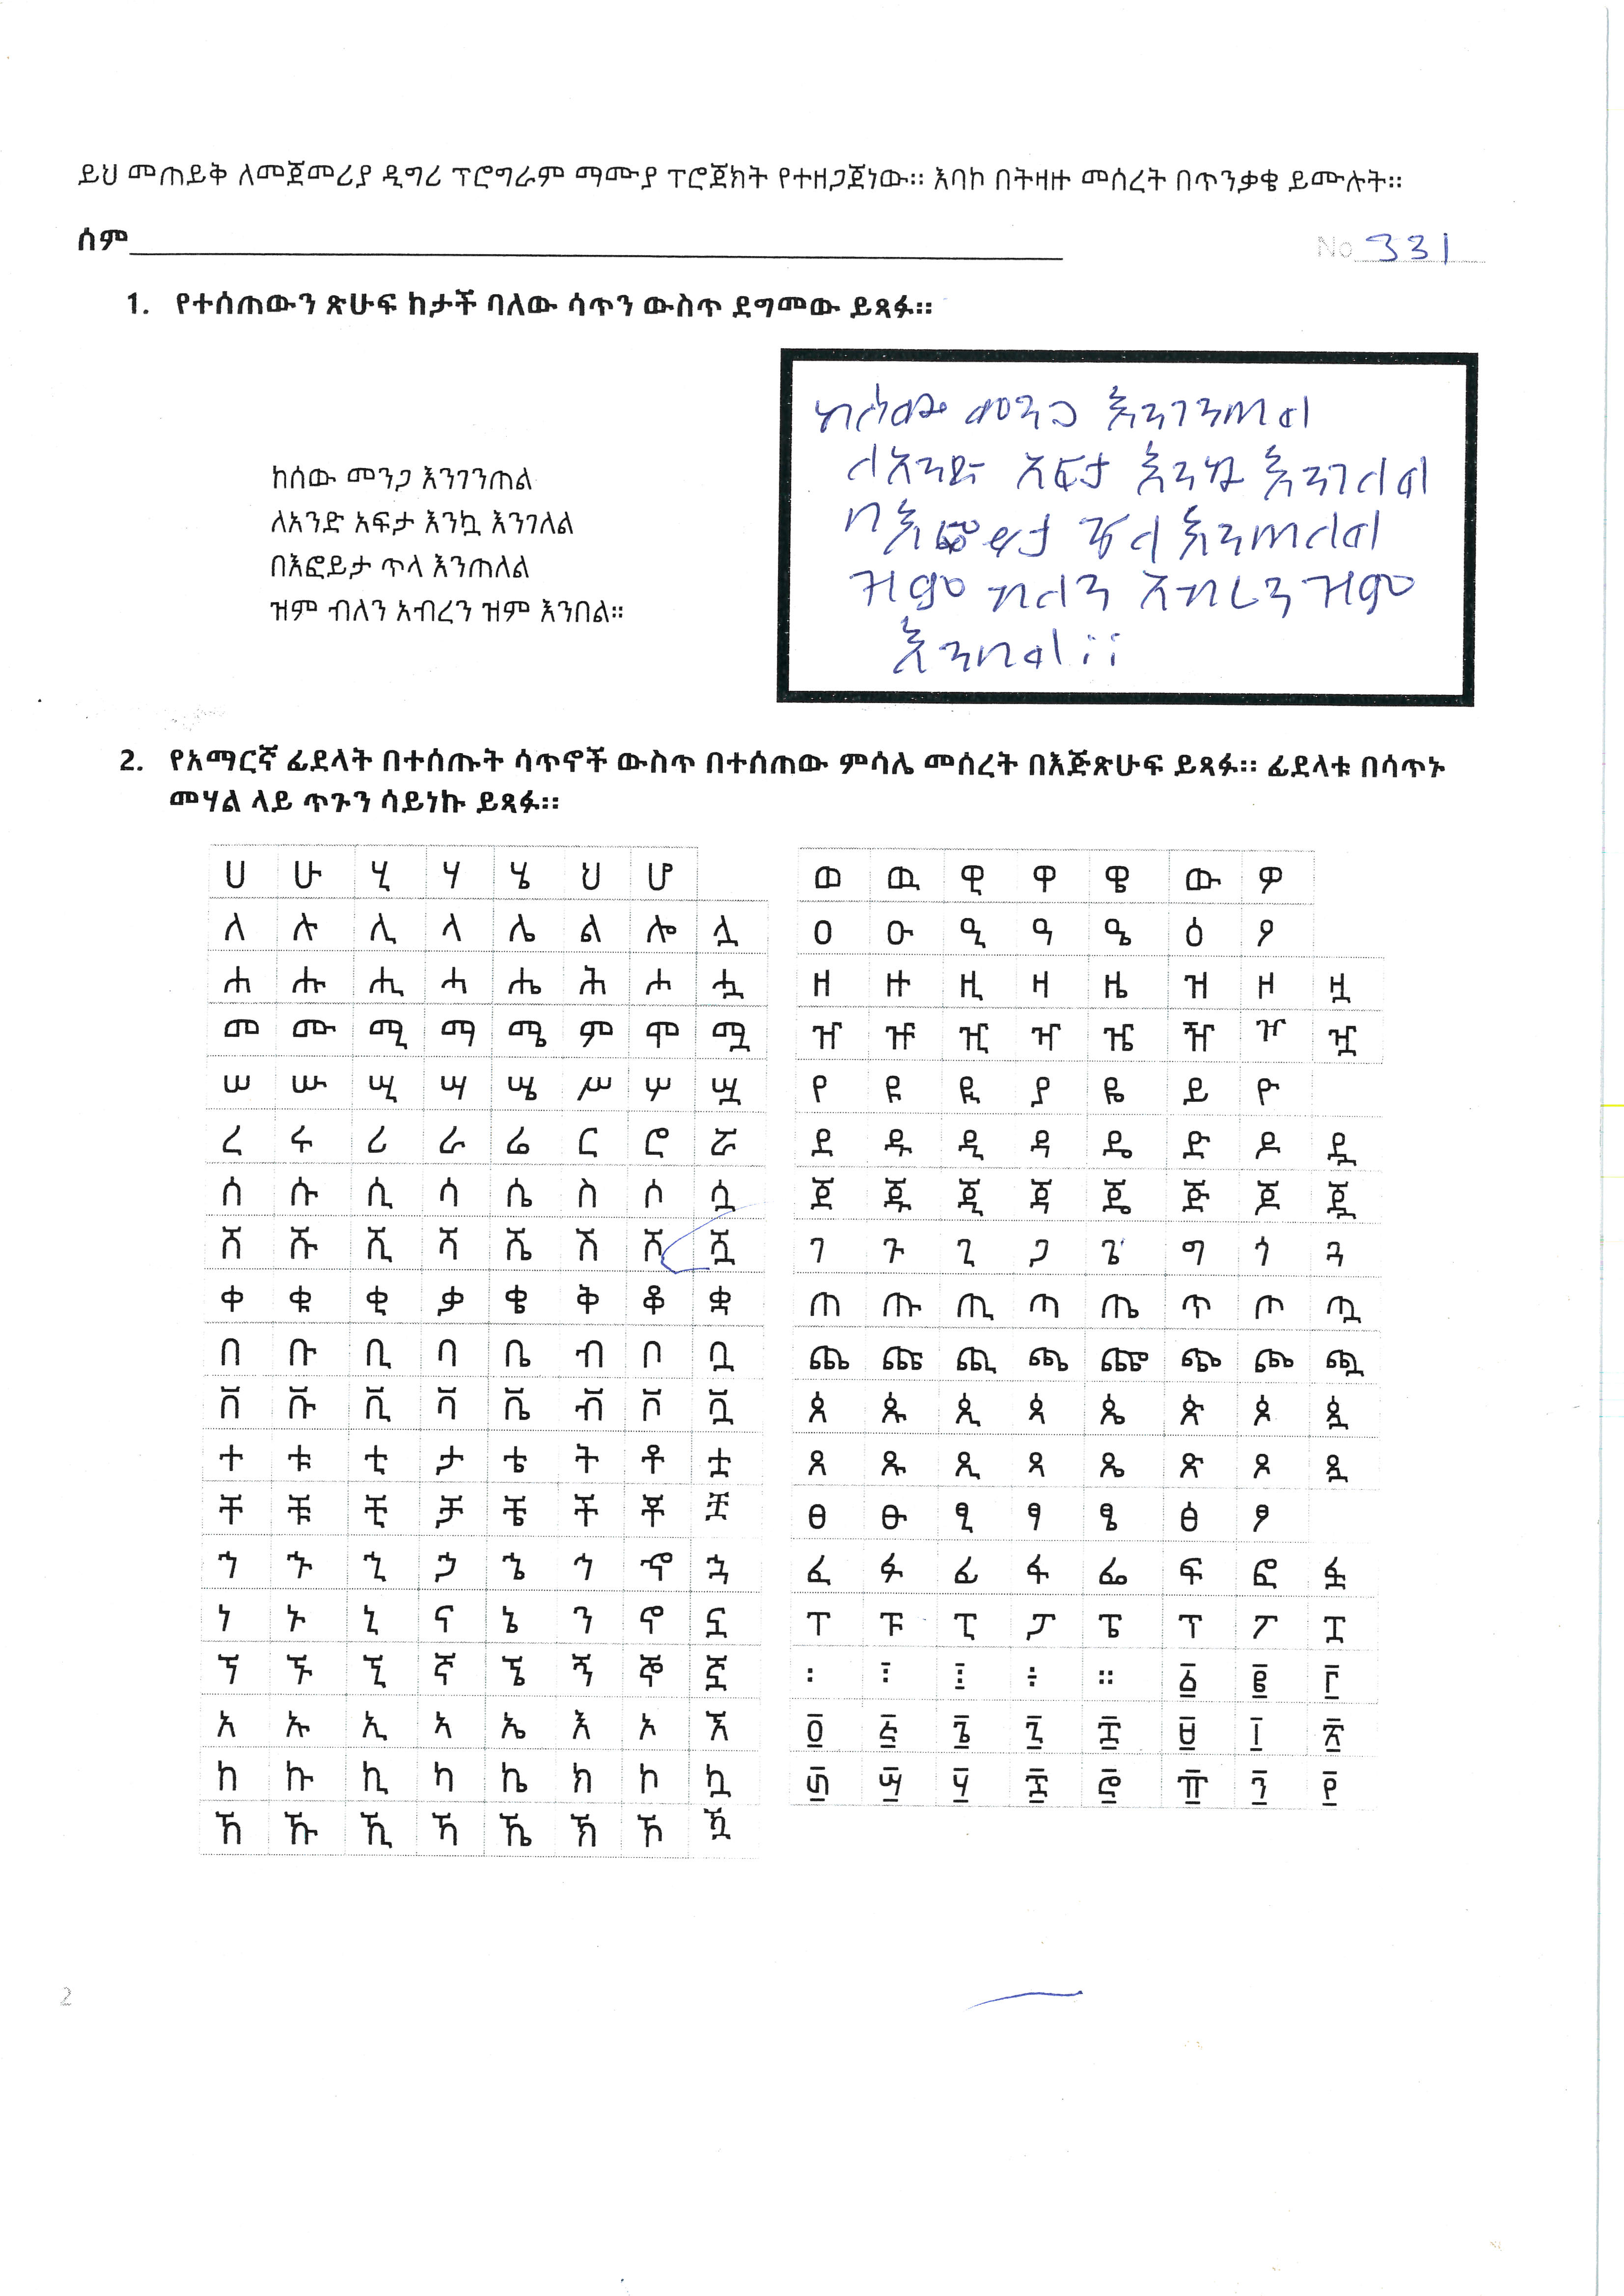 ይህ መጠይቅ ለመጀመሪያ ዲግሪ ፕሮግራም ማሙያ ፕሮጀክት የተዘጋጀነው። እባኮ በትዛዙ መሰረት በጥንቃቄ ይሙሉት።
ስም
No 331
1. የተሰጠውን ጽሁፍ ከታች ባለው ሳጥን ውስጥ ደግመው ይጻፉ።
ከሰው መንጋ እንገንጠል
ለአንድ አፍታ እንኳ እንገለል
በእፎይታ ጥላ እንጠለል
ዝም ብለን አብረን ዝም እንበል።
ከሰው መንጋ እንገንጠል
ለአንድ አፍታ እንኳ እንገለል
በእፎይታ ጥላ እንጠለል
ዝም ብለን አብረን ዝም
እንበል።
2. የአማርኛ ፊደላት በተሰጡት ሳጥኖች ውስጥ በተሰጠው ምሳሌ መሰረት በእጅጽሁፍ ይጻፉ። ፊደላቱ በሳጥኑ
መሃል ላይ ጥጉን ሳይነኩ ይጻፉ።
ሀ ሁ ሂ ሃ ሄ ህ ሆ
ለ ሉ ሊ ላ ሌ ል ሎ ሏ
ሐ ሑ ሒ ሓ ሔ ሕ ሖ ሗ
መ ሙ ሚ ማ ሜ ም ሞ ሟ
ሠ ሡ ሢ ሣ ሤ ሥ ሦ ሧ
ረ ሩ ሪ ራ ሬ ር ሮ ሯ
ሰ ሱ ሲ ሳ ሴ ስ ሶ ሷ
ሸ ሹ ሺ ሻ ሼ ሽ ሾ ሿ
ቀ ቁ ቂ ቃ ቄ ቅ ቆ ቋ
በ ቡ ቢ ባ ቤ ብ ቦ ቧ
ቨ ቩ ቪ ቫ ቬ ቭ ቮ ቯ
ተ ቱ ቲ ታ ቴ ት ቶ ቷ
ቸ ቹ ቺ ቻ ቼ ች ቾ ቿ
ኀ ኁ ኂ ኃ ኄ ኅ ኆ ኋ
ነ ኑ ኒ ና ኔ ን ኖ ኗ
ኘ ኙ ኚ ኛ ኜ ኝ ኞ ኟ
አ ኡ ኢ ኣ ኤ እ ኦ ኧ
ከ ኩ ኪ ካ ኬ ክ ኮ ኳ
ኸ ኹ ኺ ኻ ኼ ኽ ኾ ዃ
ወ ዉ ዊ ዋ ዌ ው ዎ
ዐ ዑ ዒ ዓ ዔ ዕ ዖ
ዘ ዙ ዚ ዛ ዜ ዝ ዞ ዟ
ዠ ዡ ዢ ዣ ዤ ዥ ዦ ዧ
የ ዩ ዪ ያ ዬ ይ ዮ
ደ ዱ ዲ ዳ ዴ ድ ዶ ዷ
ጀ ጁ ጂ ጃ ጄ ጅ ጆ ጇ
ገ ጉ ጊ ጋ ጌ ግ ጎ ጓ
ጠ ጡ ጢ ጣ ጤ ጥ ጦ ጧ
ጨ ጩ ጪ ጫ ጬ ጭ ጮ ጯ
ጰ ጱ ጲ ጳ ጴ ጵ ጶ ጷ
ጸ ጹ ጺ ጻ ጼ ጽ ጾ ጿ
ፀ ፁ ፂ ፃ ፄ ፅ ፆ
ፈ ፉ ፊ ፋ ፌ ፍ ፎ ፏ
ፐ ፑ ፒ ፓ ፔ ፕ ፖ ፗ
፡ ፣ ፤ ÷ ። ፩ ፪ ፫
፬ ፭ ፮ ፯ ፰ ፱ ፲ ፳
፴ ፵ ፶ ፷ ፸ ፹ ፺ ፻
2